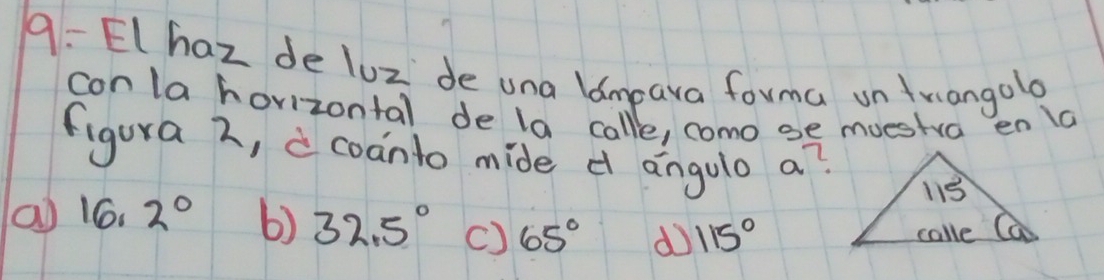 9.- El haz de luz de una lámpara forma un triangulo
con la horizontal de la calle, como se muestra en la
figura 2, ¿ coánto mide el ángulo a?
115
a) 16.2° b) 32.5° c) 65° d) 115°
calle a